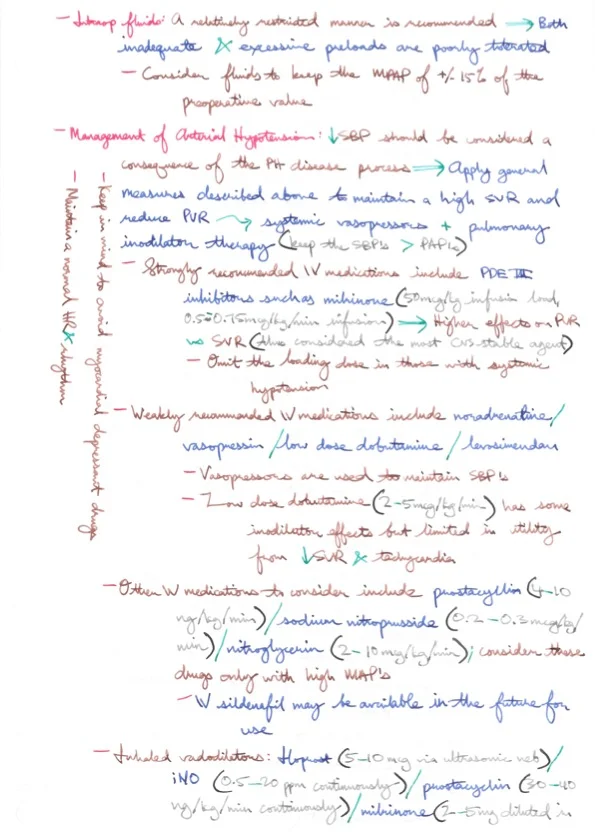 - Intraop fluids: A relatively restricted manner is recommended → Both
inadequate & excessive preloads are poorly tolerated
- Consider fluids to keep the MPAP of +/- 15% of the
preoperative value
- Management of Arterial Hypotension: ↓SBP should be considered a
consequence of the PH disease process ⇒ Apply general
measures described above to maintain a high SVR and
reduce PVR → systemic vasopressors + pulmonary
inodilator therapy (keep the SBP's > PAP's)
- Strongly recommended IV medications include PDE III
inhibitors such as milrinone (50mcg/kg infusion load,
0.5-0.75mcg/kg/min infusion) → Higher effects on PVR
vs SVR (also considered the most CVS-stable agent)
- Omit the loading dose in those with systemic
hypotension
- Weakly recommended IV medications include noradrenaline/
vasopressin/low dose dobutamine/levosimendan
- Vasopressors are used to maintain SBP's
- Low dose dobutamine (2-5mcg/kg/min) has some
inodilator effects but limited in utility
from ↓SVR & tachycardia
- Other IV medications to consider include prostacyclin (4-10
ng/kg/min)/sodium nitroprusside (0.2-0.3mcg/kg/
min)/nitroglycerin (2-10mcg/kg/min); consider these
drugs only with high MAP's
- IV sildenefil may be available in the future for
use
- Inhaled vadodilators: Iloprost (5-10mcg via ultrasonic neb)/
iNO (0.5-20 ppm continuously)/prostacyclin (30-40
ng/kg/min continuously)/milrinone (2-5mg diluted in
- Keep in mind to avoid myocardial depressant drugs
- Maintain a normal HR & rhythm